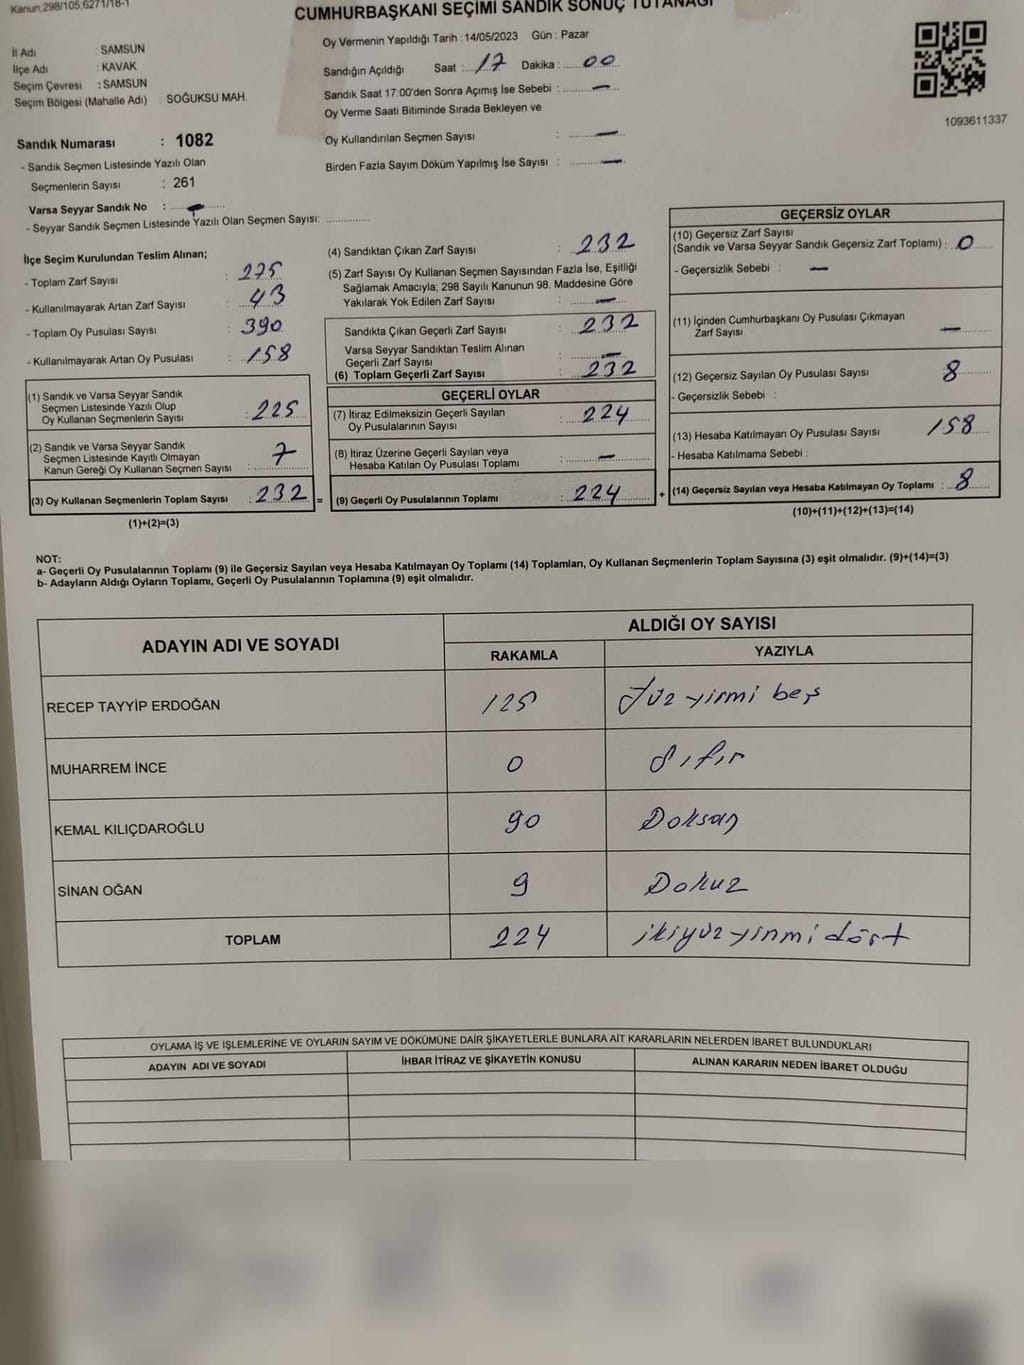 Kanun:298/105;6271/18-1
CUMHURBAŞKANI SEÇİMİ SANDIK SONUÇ TUTANAĞI
İl Adı : SAMSUN
İlçe Adı : KAVAK
Seçim Çevresi : SAMSUN
Seçim Bölgesi (Mahalle Adı) : SOĞUKSU MAH.
Sandık Numarası : 1082
- Sandık Seçmen Listesinde Yazılı Olan
Seçmenlerin Sayısı : 261
Varsa Seyyar Sandık No : -
- Seyyar Sandık Seçmen Listesinde Yazılı Olan Seçmen Sayısı: ..............
Oy Vermenin Yapıldığı Tarih : 14/05/2023 Gün : Pazar
Sandığın Açıldığı Saat : 17 Dakika : 00
Sandık Saat 17:00'den Sonra Açımış İse Sebebi : -
Oy Verme Saati Bitiminde Sırada Bekleyen ve
Oy Kullandırılan Seçmen Sayısı : -
Birden Fazla Sayım Döküm Yapılmış İse Sayısı : -
1093611337
İlçe Seçim Kurulundan Teslim Alınan;
- Toplam Zarf Sayısı : 275
- Kullanılmayarak Artan Zarf Sayısı : 43
- Toplam Oy Pusulası Sayısı : 390
- Kullanılmayarak Artan Oy Pusulası : 158
(1) Sandık ve Varsa Seyyar Sandık
Seçmen Listesinde Yazılı Olup
Oy Kullanan Seçmenlerin Sayısı : 225
(2) Sandık ve Varsa Seyyar Sandık
Seçmen Listesinde Kayıtlı Olmayan
Kanun Gereği Oy Kullanan Seçmen Sayısı : 7
(3) Oy Kullanan Seçmenlerin Toplam Sayısı : 232 =
(1)+(2)=(3)
(4) Sandıktan Çıkan Zarf Sayısı : 232
(5) Zarf Sayısı Oy Kullanan Seçmen Sayısından Fazla İse, Eşitliği
Sağlamak Amacıyla; 298 Sayılı Kanunun 98. Maddesine Göre
Yakılarak Yok Edilen Zarf Sayısı : -
Sandıkta Çıkan Geçerli Zarf Sayısı : 232
Varsa Seyyar Sandıktan Teslim Alınan
Geçerli Zarf Sayısı : -
(6) Toplam Geçerli Zarf Sayısı : 232
GEÇERLİ OYLAR
(7) İtiraz Edilmeksizin Geçerli Sayılan
Oy Pusulalarının Sayısı : 224
(8) İtiraz Üzerine Geçerli Sayılan veya
Hesaba Katılan Oy Pusulası Toplamı : -
(9) Geçerli Oy Pusulalarının Toplamı : 224 +
GEÇERSİZ OYLAR
(10) Geçersiz Zarf Sayısı
(Sandık ve Varsa Seyyar Sandık Geçersiz Zarf Toplamı) : 0
- Geçersizlik Sebebi : -
(11) İçinden Cumhurbaşkanı Oy Pusulası Çıkmayan
Zarf Sayısı : -
(12) Geçersiz Sayılan Oy Pusulası Sayısı : 8
- Geçersizlik Sebebi :
(13) Hesaba Katılmayan Oy Pusulası Sayısı : 158
- Hesaba Katılmama Sebebi :
(14) Geçersiz Sayılan veya Hesaba Katılmayan Oy Toplamı : 8
(10)+(11)+(12)+(13)=(14)
NOT:
a- Geçerli Oy Pusulalarının Toplamı (9) ile Geçersiz Sayılan veya Hesaba Katılmayan Oy Toplamı (14) Toplamları, Oy Kullanan Seçmenlerin Toplam Sayısına (3) eşit olmalıdır. (9)+(14)=(3)
b- Adayların Aldığı Oyların Toplamı, Geçerli Oy Pusulalarının Toplamına (9) eşit olmalıdır.
ADAYIN ADI VE SOYADI
ALDIĞI OY SAYISI
RAKAMLA YAZIYLA
RECEP TAYYİP ERDOĞAN 125 Yüz yirmi beş
MUHARREM İNCE 0 Sıfır
KEMAL KILIÇDAROĞLU 90 Doksan
SİNAN OĞAN 9 Dokuz
TOPLAM 224 ikiyüz yirmi dört
OYLAMA İŞ VE İŞLEMLERİNE VE OYLARIN SAYIM VE DÖKÜMÜNE DAİR ŞİKAYETLERLE BUNLARA AİT KARARLARIN NELERDEN İBARET BULUNDUKLARI
ADAYIN ADI VE SOYADI İHBAR İTİRAZ VE ŞİKAYETİN KONUSU ALINAN KARARIN NEDEN İBARET OLDUĞU